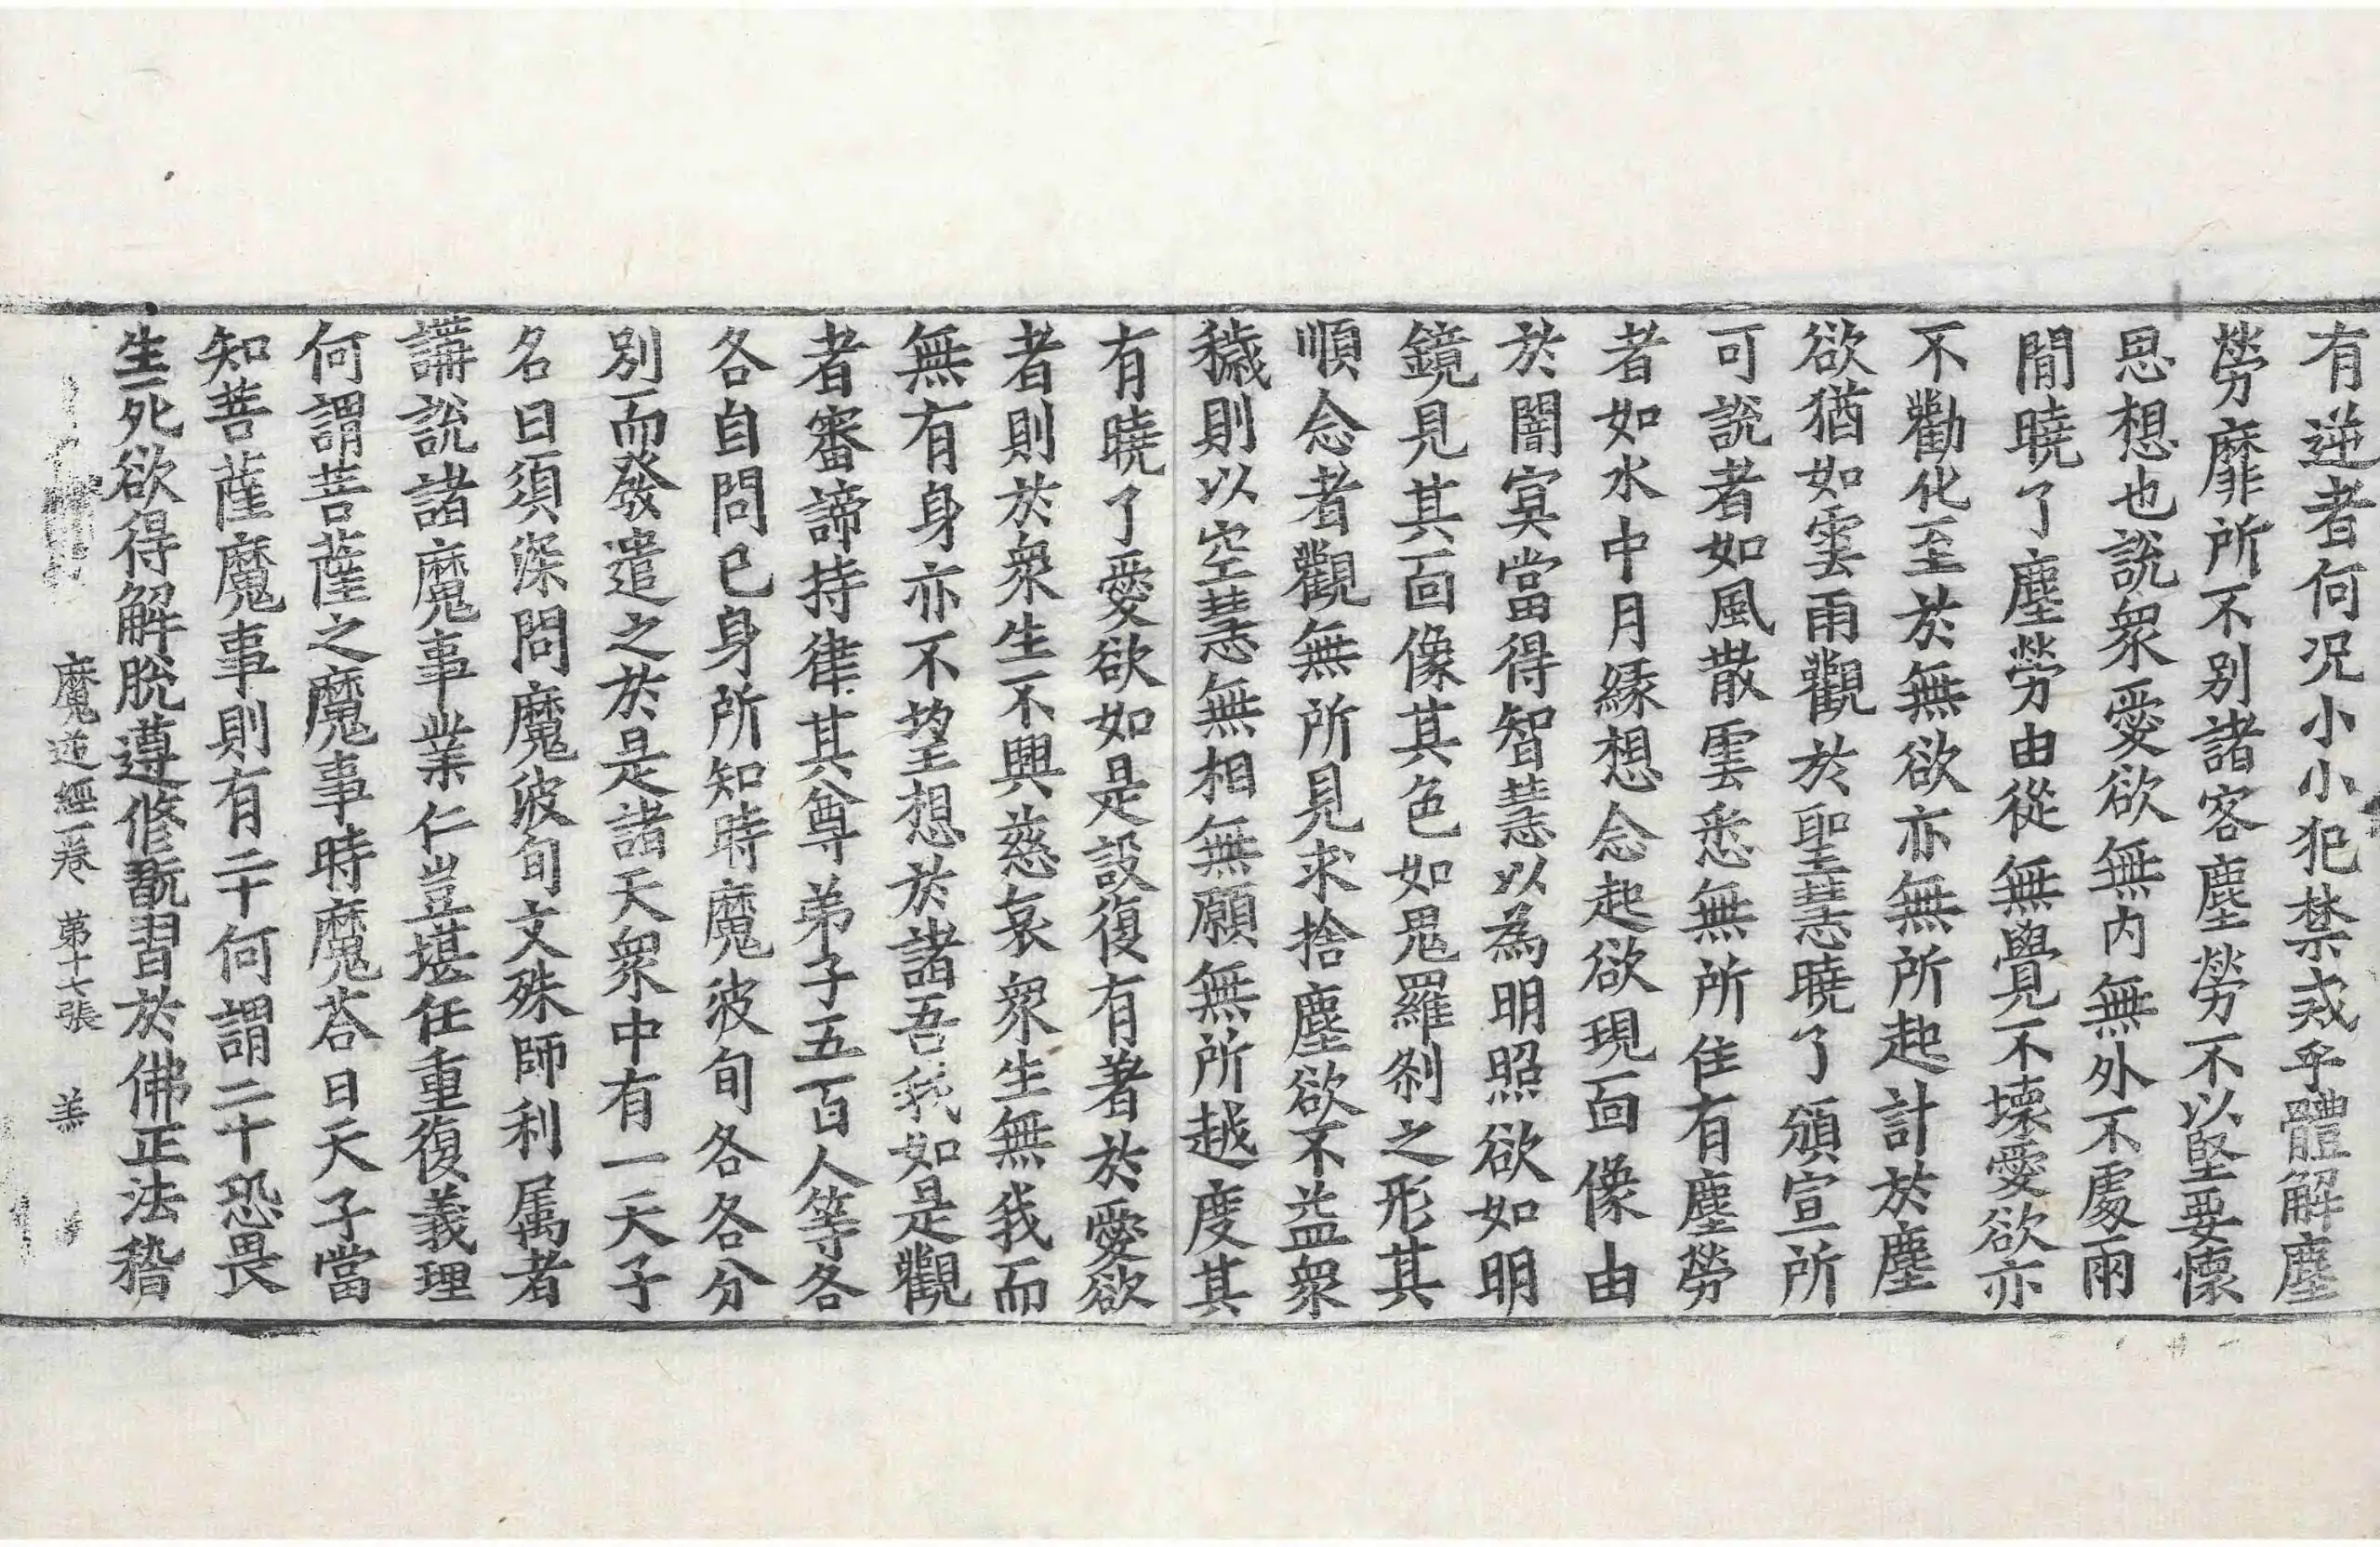 有逆者何况小小犯禁戒乎體解塵
勞靡所不别諸客塵勞不以堅要懷
思想也說衆愛欲無内無外不處兩
間曉了塵勞由從無覺不壞愛欲亦
不勸化至於無欲亦無所起計於塵
欲猶如雲雨觀於聖慧曉了頒宣所
可說者如風散雲悉無所住有塵勞
者如水中月緣想念起欲現面像由
於闇冥當得智慧以為明照欲如明
鏡見其面像其色如鬼羅剎之形其
順念者觀無所見求捨塵欲不益衆
穢則以空慧無相無願無所越度其
有曉了愛欲如是設復有著於愛欲
者則於衆生不興慈哀衆生無我而
無有身亦不望想於諸吾我如是觀
者審諦持律其尊弟子五百人等各
各自問已身所知時魔波旬各各分
別而發遣之於是諸天衆中有一天子
名曰須深問魔波旬文殊師利属者
講說諸魔事業仁豈堪任重復義理
何謂菩薩之魔事時魔荅曰天子當
知菩薩魔事則有二十何謂二十恐畏
生死欲得解脫遵修翫習於佛正法稽
魔逆經一卷 苐十七張 羔